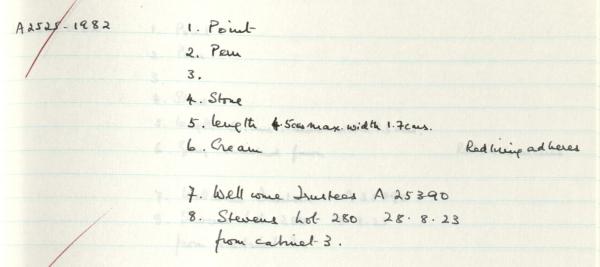 A2525-1982 1. Point
2. Peru
3.
4. Stone
5. length 4.5cms max. width 1.7cms.
6. Cream Red lining adheres
7. Wellcome Trustees A 25390
8. Stevens Lot 280 28.8.23
from cabinet 3.